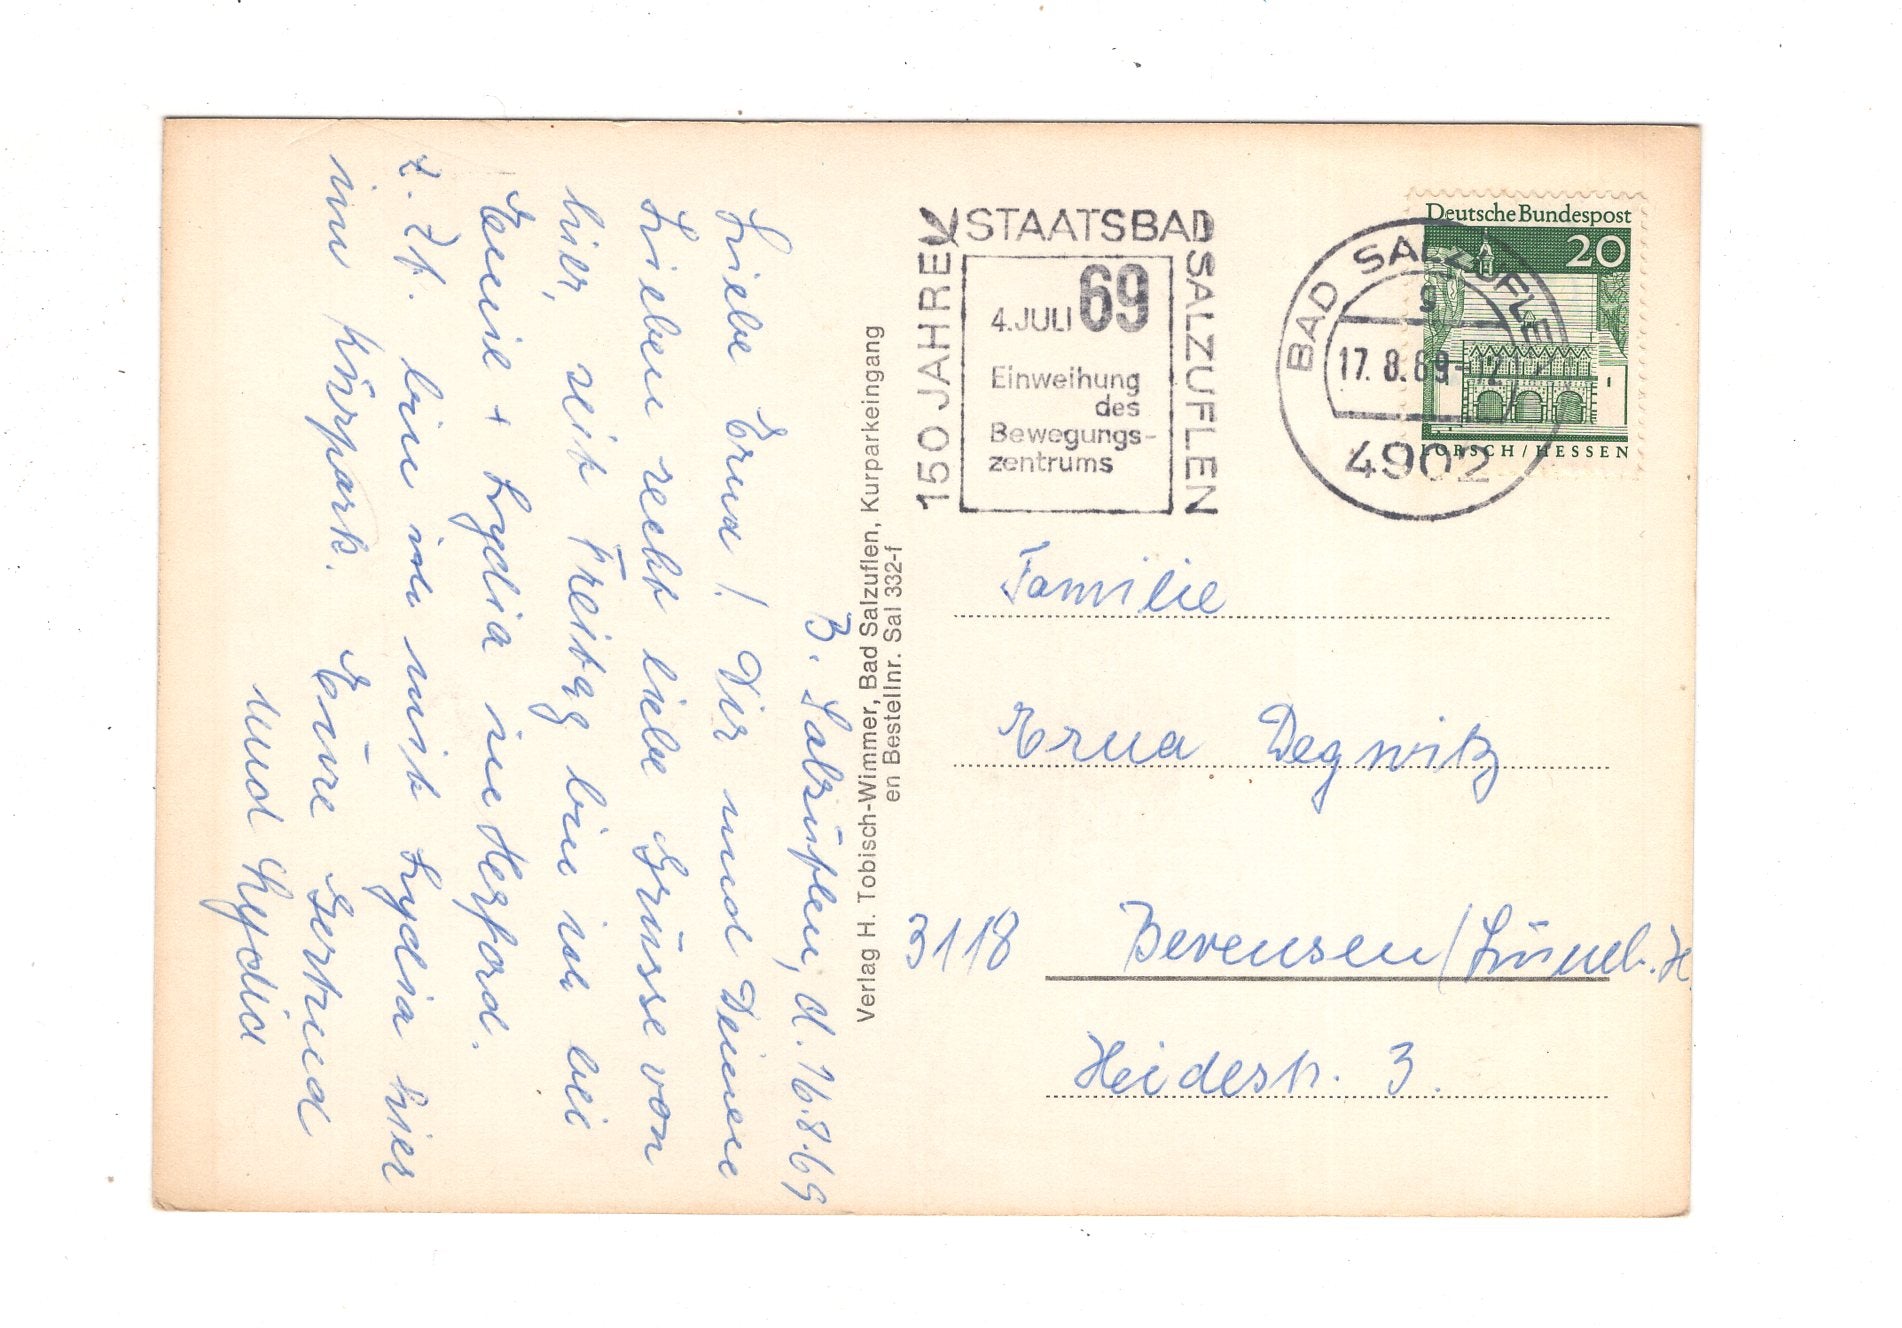 B. Salzuflen, d. 16.8.69
Liebe Erna! Dir und Deinen
Lieben recht liebe Grüsse von
hier, seit Freitag bin ich bei
+ Lydia in Herford.
z. Zt. bin ich mit Lydia hier
im Kurpark. Eure Gertrud
und Lydia
Verlag H. Tobisch-Wimmer, Bad Salzuflen, Kurparkeingang
en Bestellnr. Sal 332-f
150 JAHRE STAATSBAD SALZUFLEN
4. JULI 69
Einweihung
des
Bewegungs-
zentrums
BAD SALZUFLEN
g
17. 8. 69
4902
Deutsche Bundespost
20
LORSCH / HESSEN
Familie
Erna Degwitz
3118 Bevensen / Lüneb. H
Heidestr. 3.